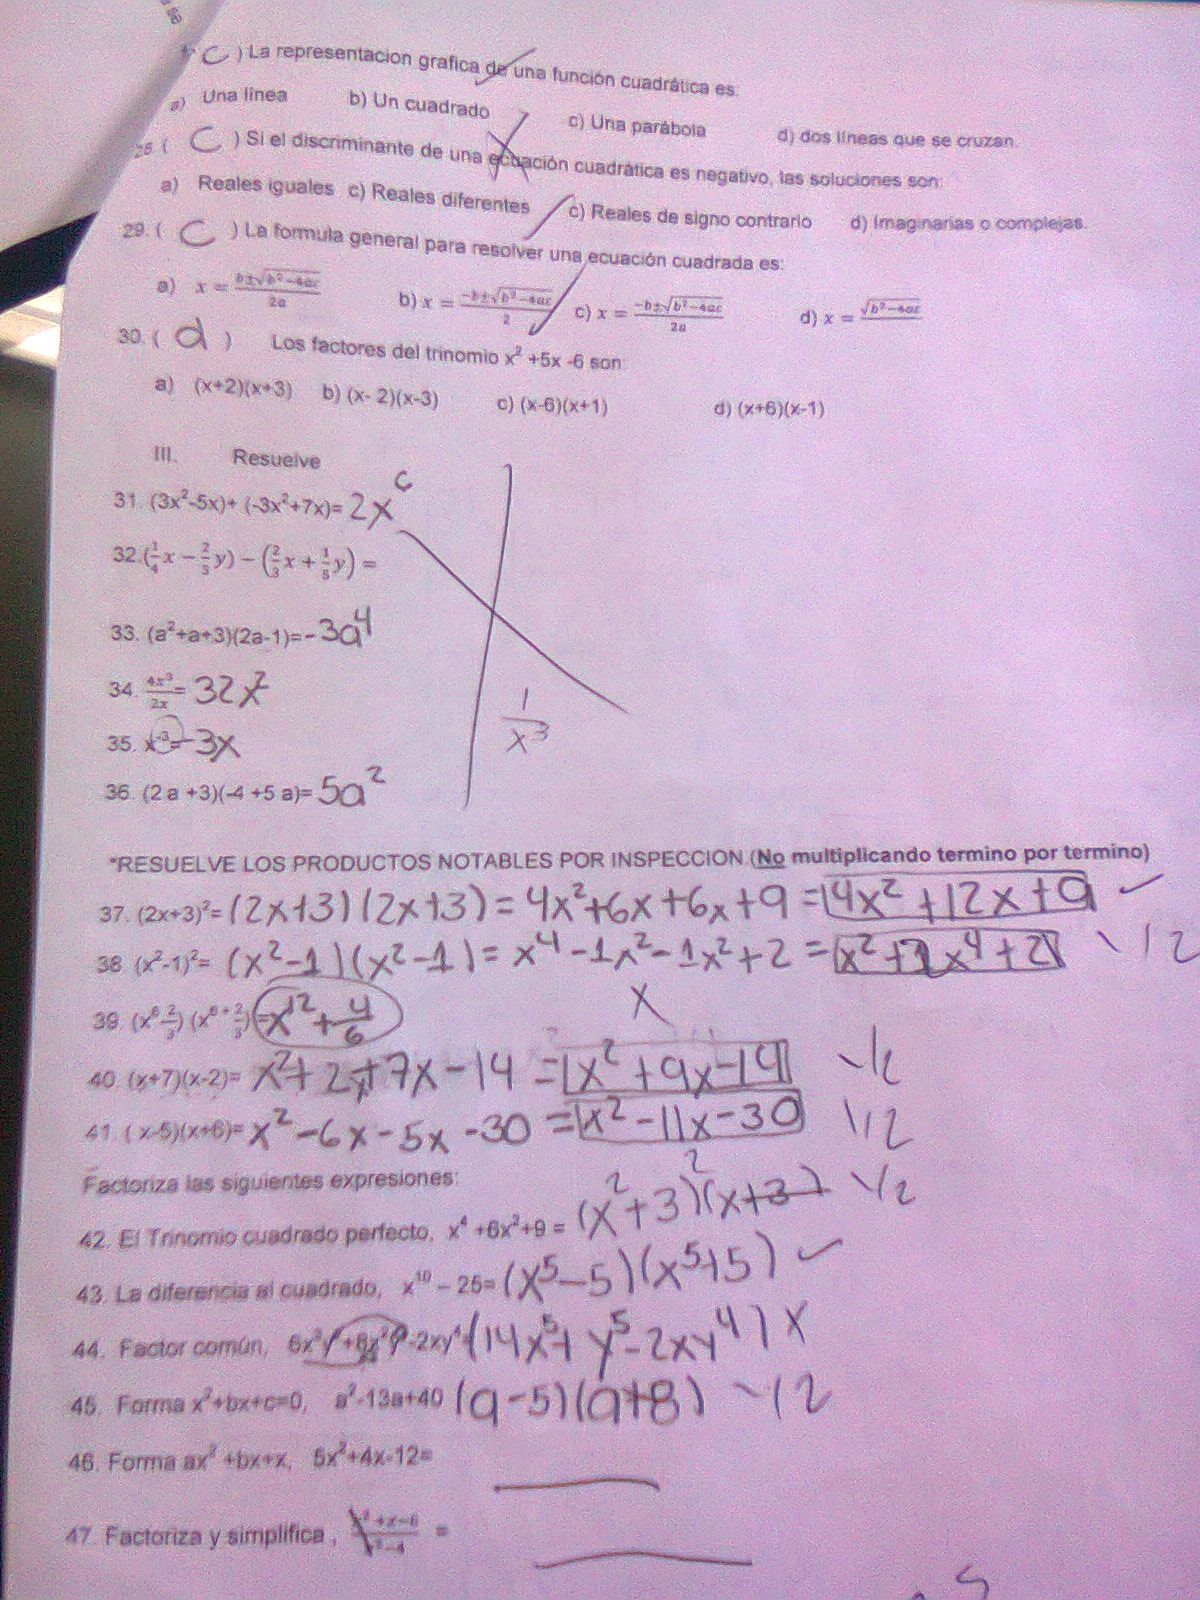 C ) La representacion grafica de una función cuadrática es:
a) Una línea b) Un cuadrado c) Una parábola d) dos líneas que se cruzan.
( C ) Si el discriminante de una ecuación cuadrática es negativo, las soluciones son:
a) Reales iguales c) Reales diferentes c) Reales de signo contrario d) Imaginarias o complejas.
29. ( C ) La formula general para resolver una ecuación cuadrada es:
a) x = b±√b²-4ac/2a b) x = -b±√b²-4ac/2 c) x = -b±√b²-4ac/2a d) x = √b²-4ac
30. ( d ) Los factores del trinomio x² +5x -6 son:
a) (x+2)(x+3) b) (x- 2)(x-3) c) (x-6)(x+1) d) (x+6)(x-1)
III. Resuelve
31. (3x²-5x)+ (-3x²+7x)= 2x⁶
32. (1/4 x − 2/3 y) − (2/3 x + 1/5 y) =
33. (a²+a+3)(2a-1)= -3a⁴
34. 4x³/2x = 32x²
35. x⁻³= -3x 1/x³
36. (2 a +3)(-4 +5 a)= 5a²
*RESUELVE LOS PRODUCTOS NOTABLES POR INSPECCION (No multiplicando termino por termino)
37. (2x+3)²= (2x+3)(2x+3) = 4x²+6x+6x+9 = 4x²+12x+9 ✓
38. (x²-1)²= (x²-1)(x²-1) = x⁴-1x²-1x²+2 = x²+2x⁴+2 \ 12
39. = x¹² + 4/6 X
40. (x+7)(x-2)= x²+2x+7x-14 = 1x²+9x-14 1/2
41. ( x-5)(x+6)= x²-6x-5x-30 = 1x²-11x-30 1/2
Factoriza las siguientes expresiones:
42. El Trinomio cuadrado perfecto, x⁴ +6x²+9 = (x²+3)²(x+3) 1/2
43. La diferencia al cuadrado, x¹⁰ – 25= (x⁵-5)(x⁵+5) ✓
44. Factor común, -2xy⁴ (14x⁵+y⁵-2xy⁴) X
45. Forma x²+bx+c=0, a²-13a+40 (a-5)(a+8) -12
46. Forma ax² +bx+x, 5x²+4x-12=
47. Factoriza y simplifica , x²+x-6/x²-4 =